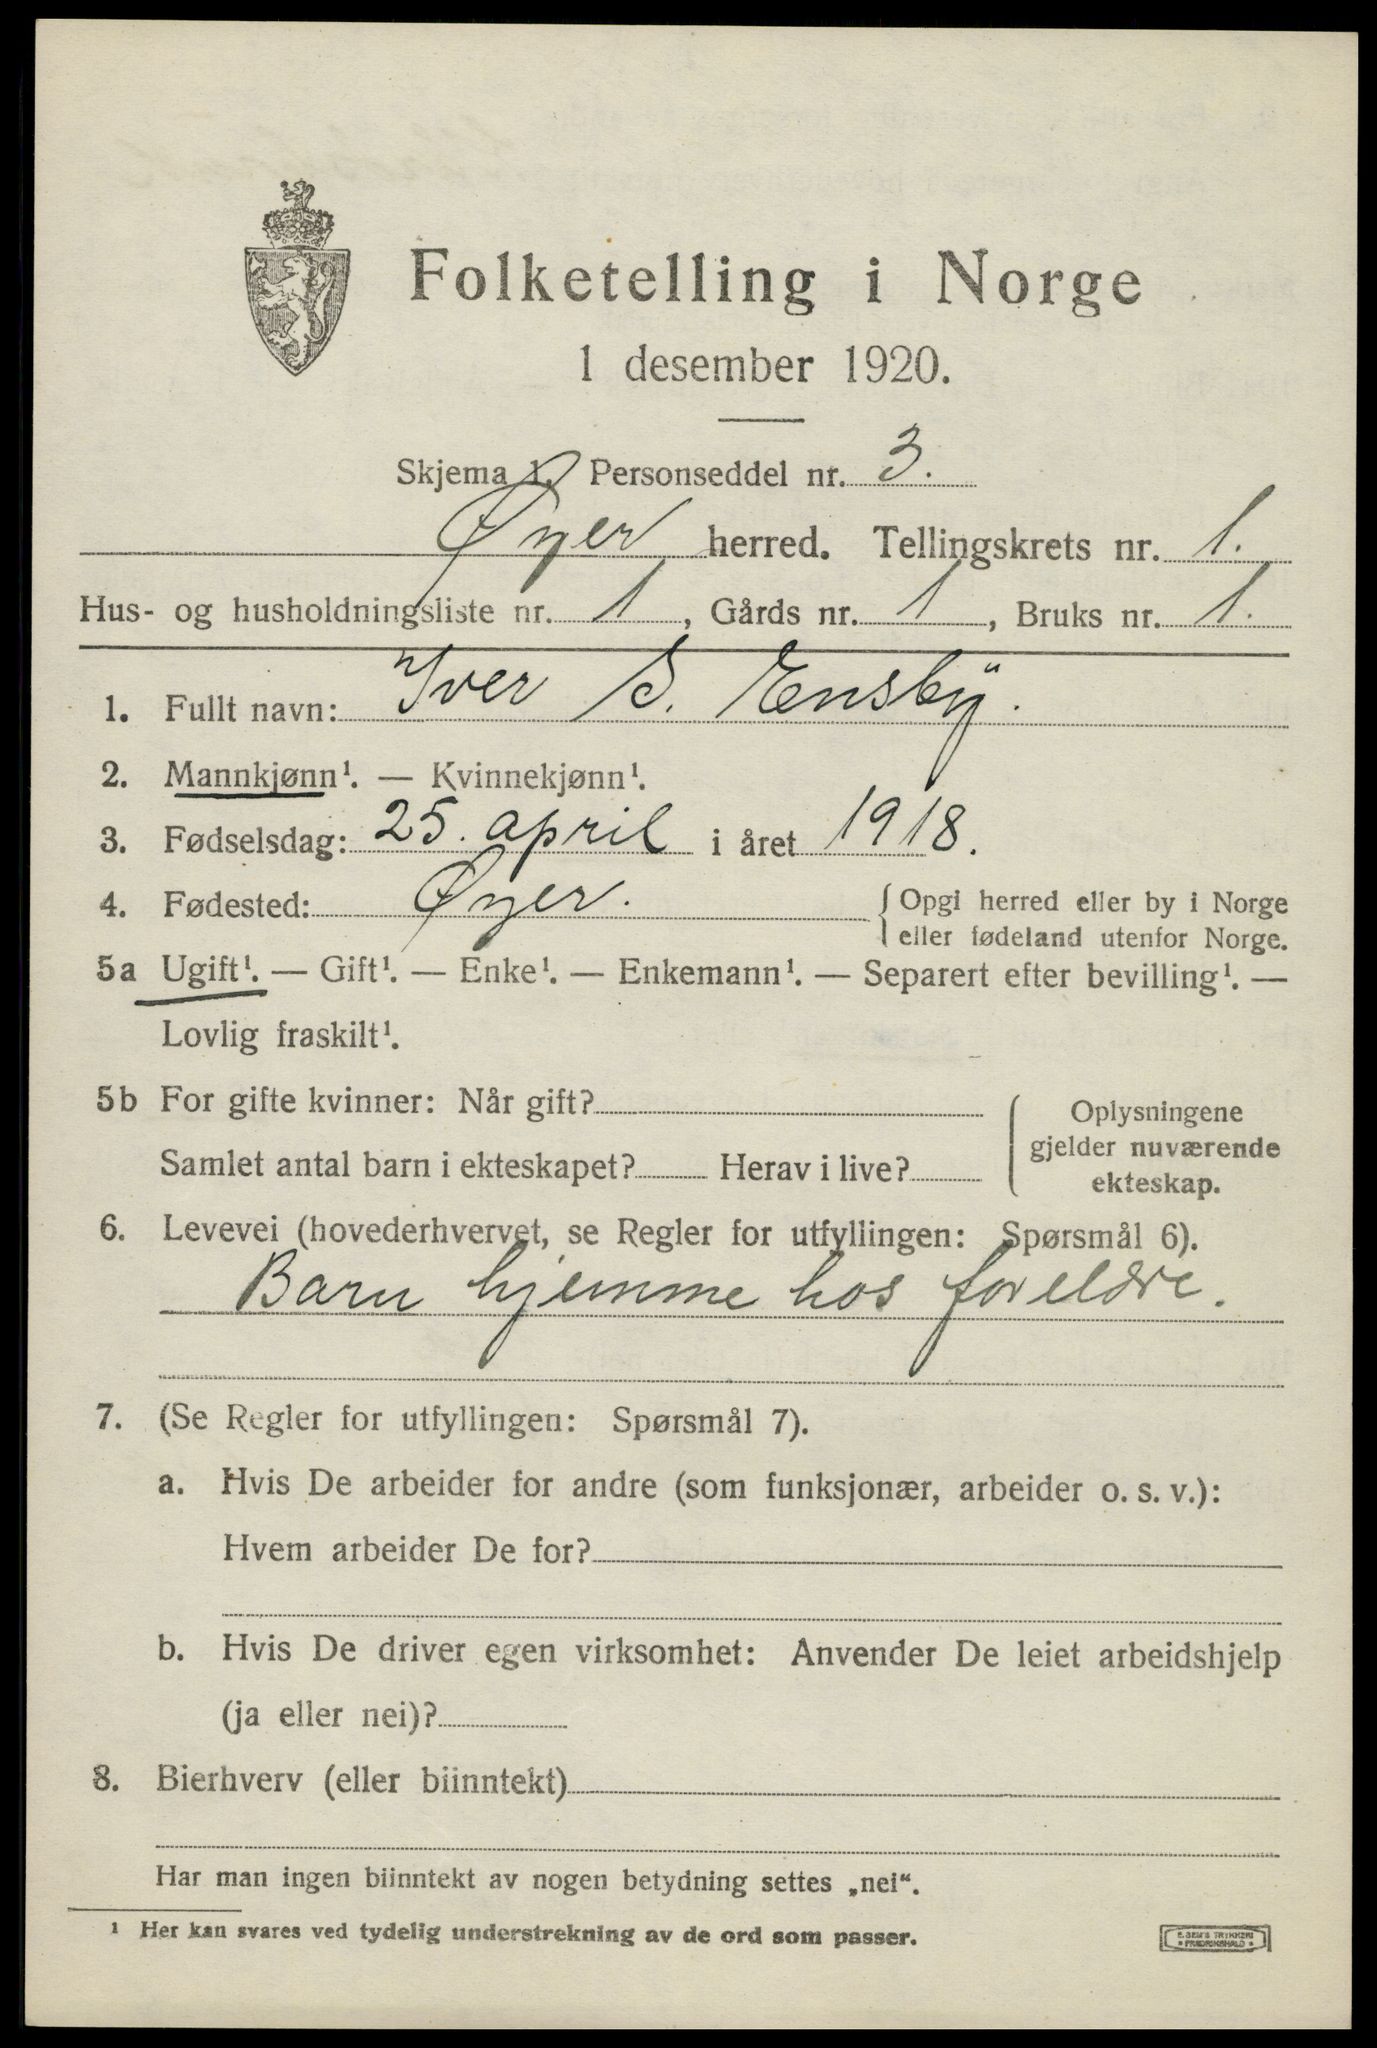 Folketelling i Norge
1 desember 1920.
Skjema 1. Personseddel nr. 3.
Øyer herred. Tellingskrets nr. 1.
Hus- og husholdningsliste nr. 1, Gårds nr. 1, Bruks nr. 1.
1. Fullt navn: Iver S. Ensbÿ.
2. Mannkjønn¹. — Kvinnekjønn¹.
3. Fødselsdag: 25. april i året 1918.
4. Fødested: Øyer. {Opgi herred eller by i Norge
eller fødeland utenfor Norge.
5a Ugift¹. — Gift¹. — Enke¹. — Enkemann¹. — Separert efter bevilling¹. —
Lovlig fraskilt¹.
5b For gifte kvinner: Når gift?
Samlet antal barn i ekteskapet? Herav i live?
Oplysningene
gjelder nuværende
ekteskap.
6. Levevei (hovederhvervet, se Regler for utfyllingen: Spørsmål 6).
Barn hjemme hos foreldre.
7. (Se Regler for utfyllingen: Spørsmål 7).
a. Hvis De arbeider for andre (som funksjonær, arbeider o. s. v.):
Hvem arbeider De for?
b. Hvis De driver egen virksomhet: Anvender De leiet arbeidshjelp
(ja eller nei)?
8. Bierhverv (eller biinntekt)
Har man ingen biinntekt av nogen betydning settes „nei“.
¹ Her kan svares ved tydelig understrekning av de ord som passer.
E. SEM'S TRYKKERI
• FREDRIKSHALD •